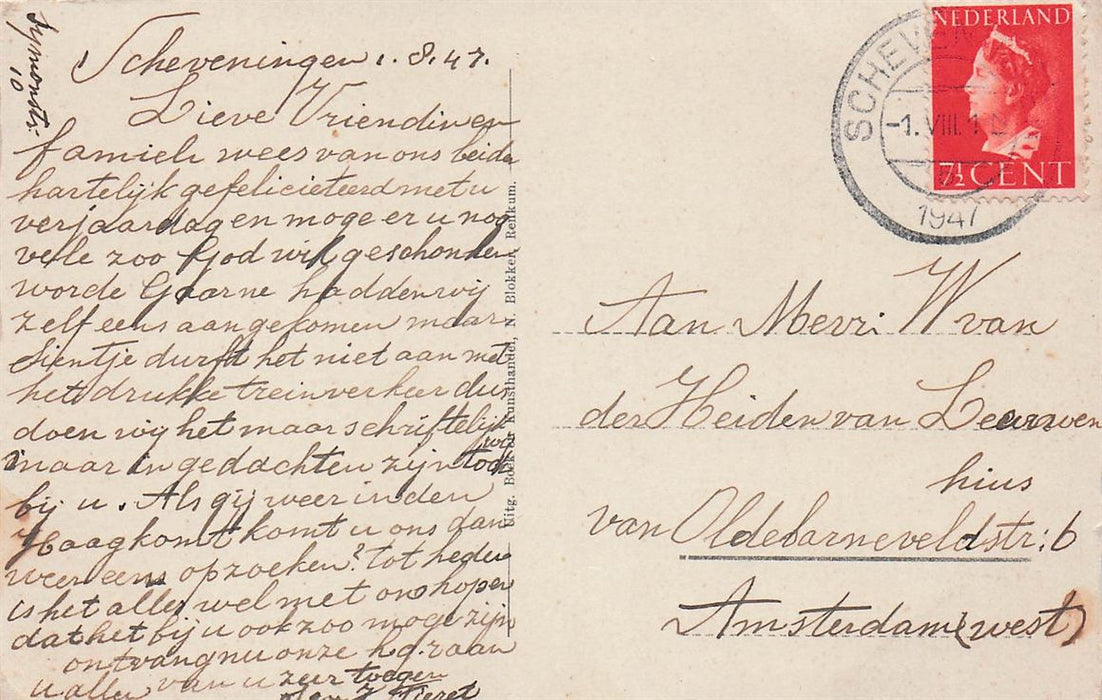 Symonsstr.
10
Scheveningen 1.8.47.
Lieve Vriendin en
famieli wees van ons beide
hartelijk gefeliciteerd met u
verjaardag en moge er u nog
vele zoo God wil geschonken
worde Gaarne hadden wij
zelf eens aangekomen maar
Sientje durft het niet aan met
het drukke treinverkeer dus
doen wij het maar schriftelijk
maar in gedachten zijn wij toch
bij u. Als gij weer in den
Haag komt komt u ons dan
weer eens opzoeken? Tot heden
is het alles wel met ons hopen
dat het bij u ook zoo moge zijn
ontvang nu onze h.g. raan
u allen van u zeer toegen
Uitg. Boek en Kunsthandel, N. Blokker, Renkum.
NEDERLAND
7½ CENT
SCHEVEN
-1.VIII.1
1947
Aan Mevr: W van
der Heiden van Leeuwen
hius
van Oldebarneveldstr: 6
Amsterdam (west)